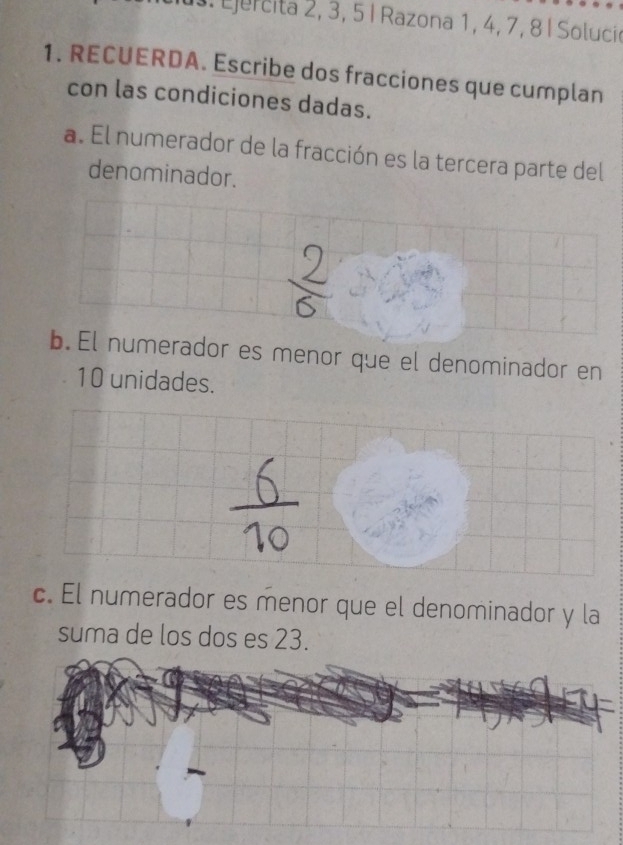 Ejercita 2, 3, 5 | Razona 1, 4, 7, 8 |
1. RECUERDA. Escribe dos fracciones que cumplan
con las condiciones dadas.
a. El numerador de la fracción es la tercera parte del
denominador.
2
6
b. El numerador es menor que el denominador en
10 unidades.
6
10
c. El numerador es menor que el denominador y la
suma de los dos es 23.